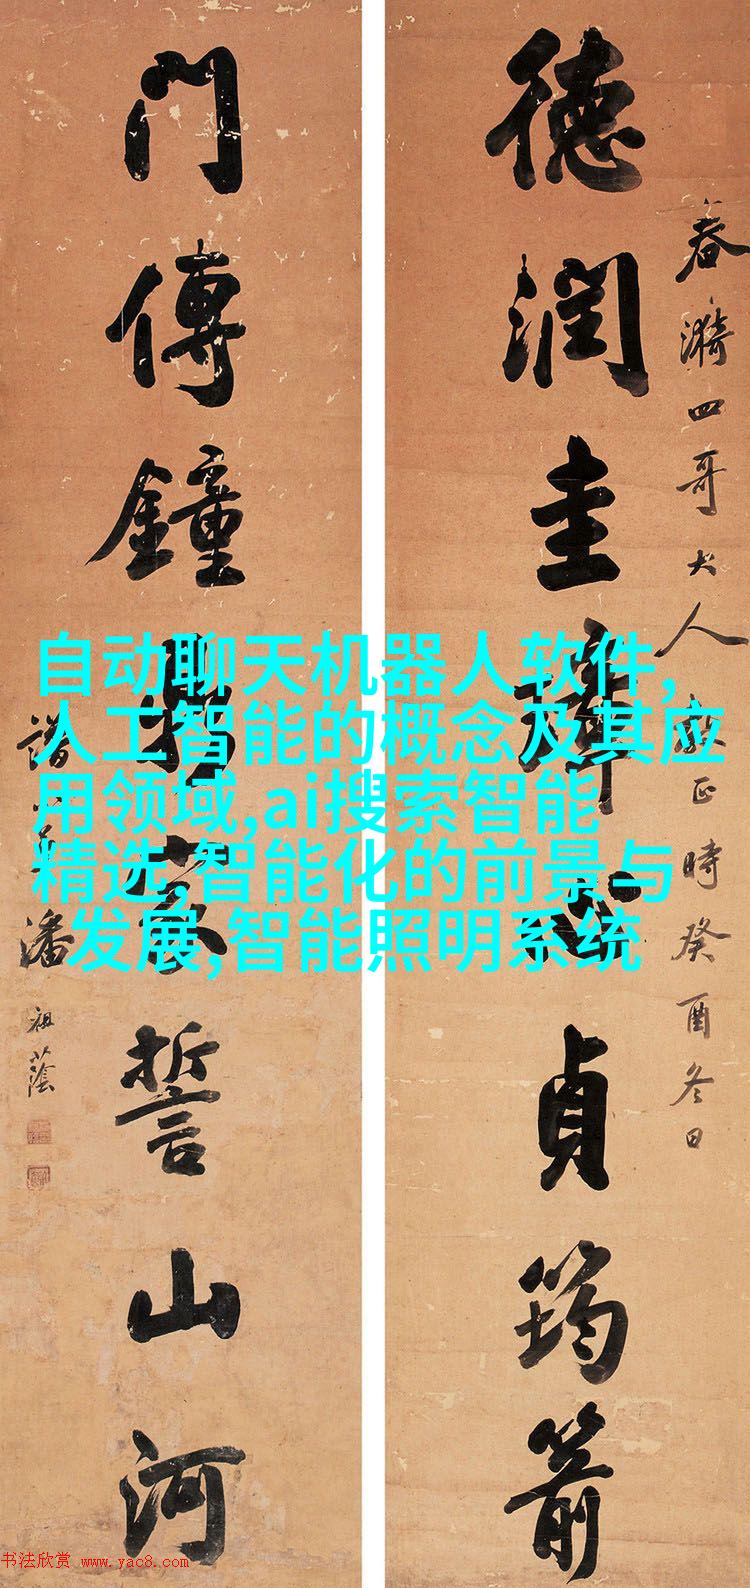 德润圭璋心贞筠箭
春漪四哥大人 正時癸酉冬日
门傳鐘鼎 誓山河
譜弟潘祖蔭
自动聊天机器人软件,
人工智能的概念及其应
用领域,ai搜索智能
精选,智能化的前景与
发展,智能照明系统
书法欣赏 www.yac8.com